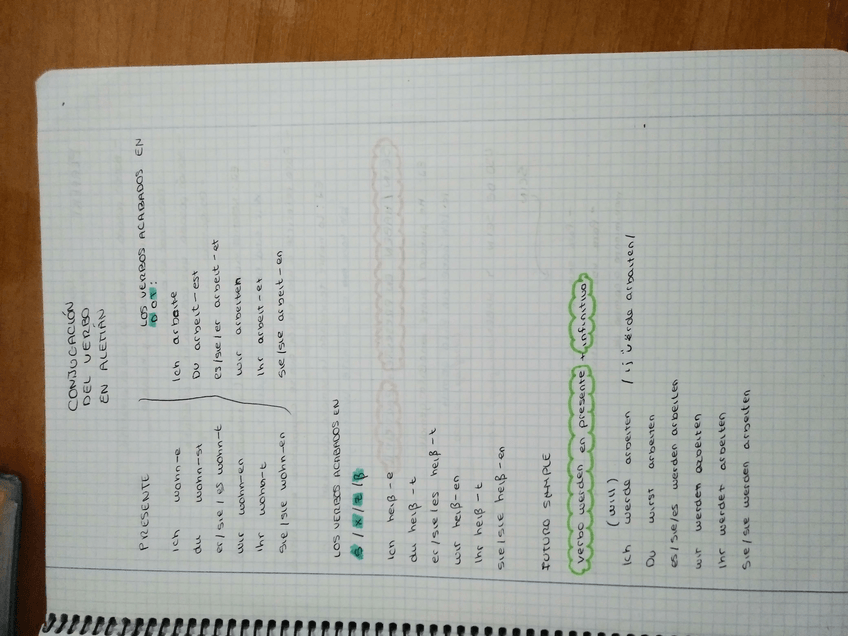 CONJUGACIÓN
DEL VERBO
EN ALEMÁN
PRESENTE
Ich wohn-e
du wohn-st
er/sie/es wohn-t
wir wohn-en
Ihr wohn-t
sie/sie wohn-en
LOS VERBOS ACABADOS EN
D O T:
Ich arbeite
Du arbeit-est
es/sie/er arbeit-et
wir arbeiten
Ihr arbeit-et
sie/sie arbeit-en
LOS VERBOS ACABADOS EN
S/X/Z/ß
Ich heiß-e
du heiß-t
er/sie/es heiß-t
wir heiß-en
Ihr heiß-t
sie/sie heiß-en
FUTURO SIMPLE
verbo werden en presente + infinitivo
(will)
Ich werde arbeiten
Du wirst arbeiten
es/sie/es werden arbeiten
wir werden arbeiten
Ihr werdet arbeiten
sie/sie werden arbeiten